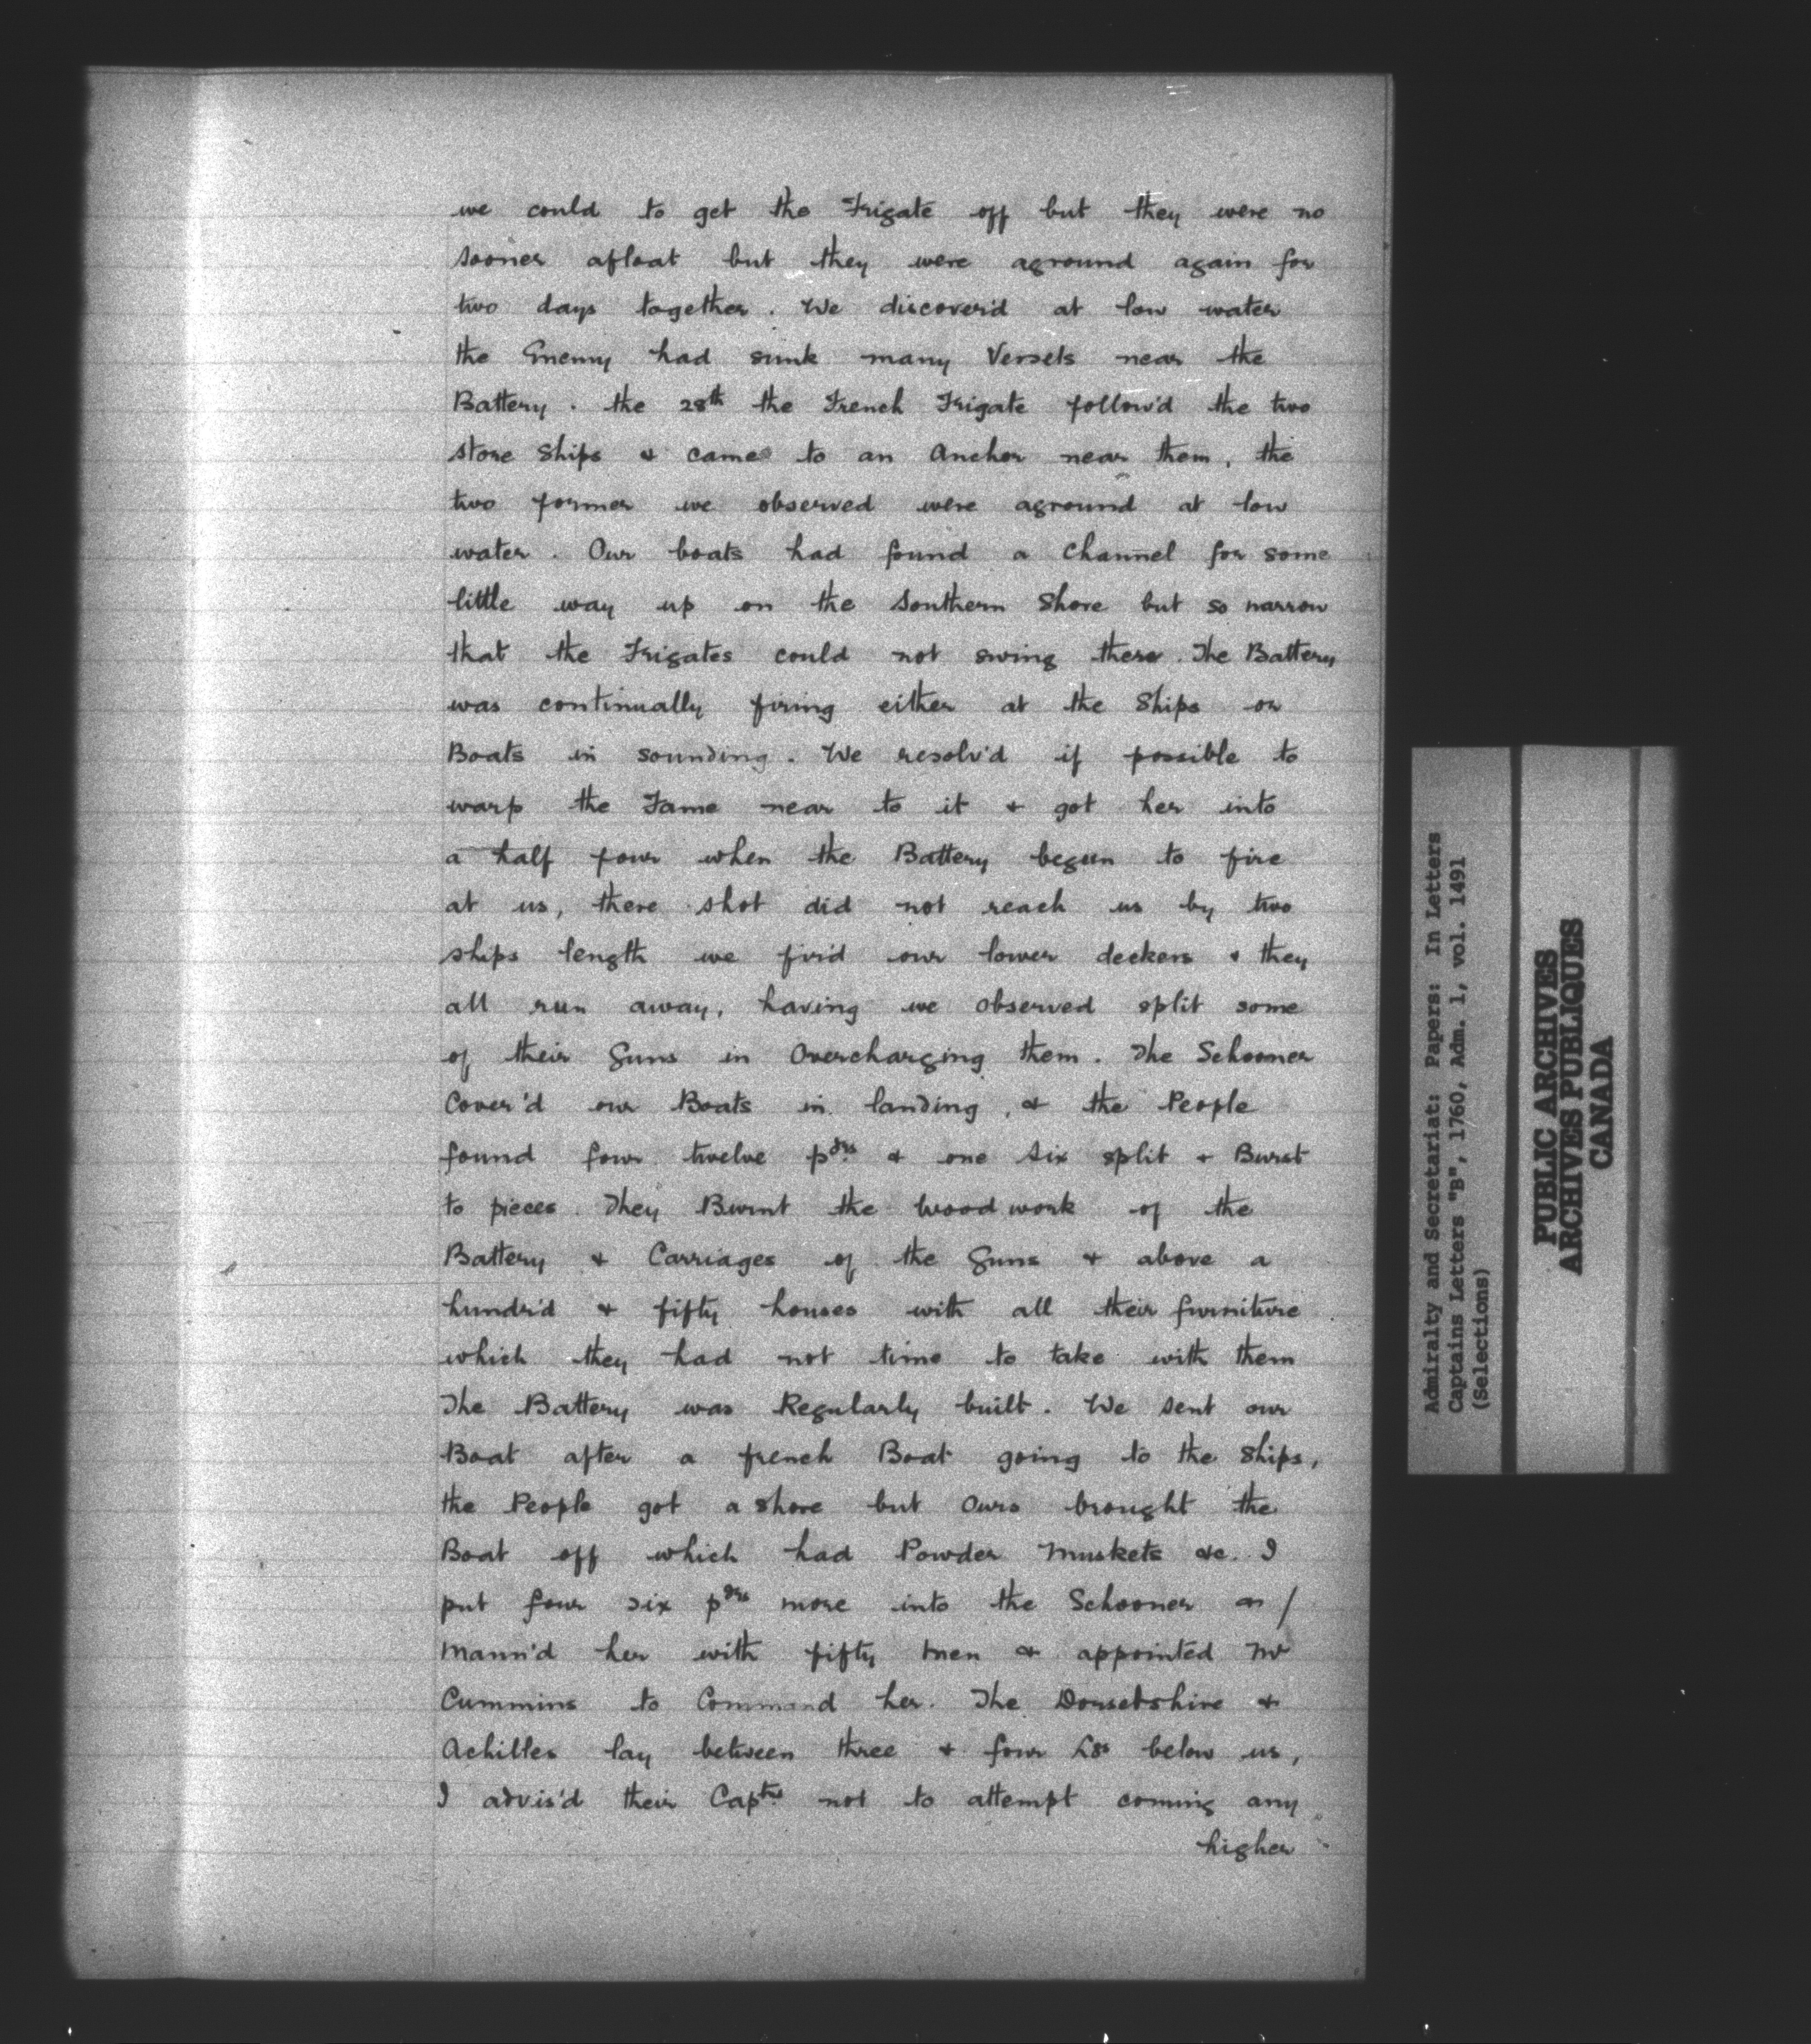 we could to get the Frigate off but they were no
sooner afloat but they were aground again for
two days together. We discover'd at low water
the Enemy had sunk many Vessels near the
Battery. the 28th the French Frigate follow'd the two
store Ships & came to an Anchor near them, the
two former we observed were aground at low
water. Our boats had found a Channel for some
little way up on the Southern Shore but so narrow
that the Frigates could not swing there. The Battery
was continually firing either at the Ships or
Boats in sounding. We resolv'd if possible to
warp the Fame near to it & got her into
a half four when the Battery begun to fire
at us, there shot did not reach us by two
ships length we fir'd our lower deckers & they
all run away, having we observed split some
of their Guns in Overcharging them. The Schooner
Cover'd our Boats in landing, & the People
found four twelve pdrs & one six split & Burst
to pieces. They Burnt the wood work of the
Battery & Carriages of the Guns & above a
hundr'd & fifty houses with all their furniture
which they had not time to take with them
The Battery was Regularly built. We sent our
Boat after a french Boat going to the Ships,
the People got a shore but Ours brought the
Boat off which had Powder Muskets &c. I
put four six pdrs more into the Schooner on /
Mann'd her with fifty men & appointed Mr
Cummins to Command her. The Dorsetshire &
Achilles lay between three & four Lgs below us,
I advis'd their Captns not to attempt coming any
higher
Admiralty and Secretariat: Papers: In Letters
Captains Letters "B", 1760, Adm. 1, vol. 1491
(Selections)
PUBLIC ARCHIVES
ARCHIVES PUBLIQUES
CANADA